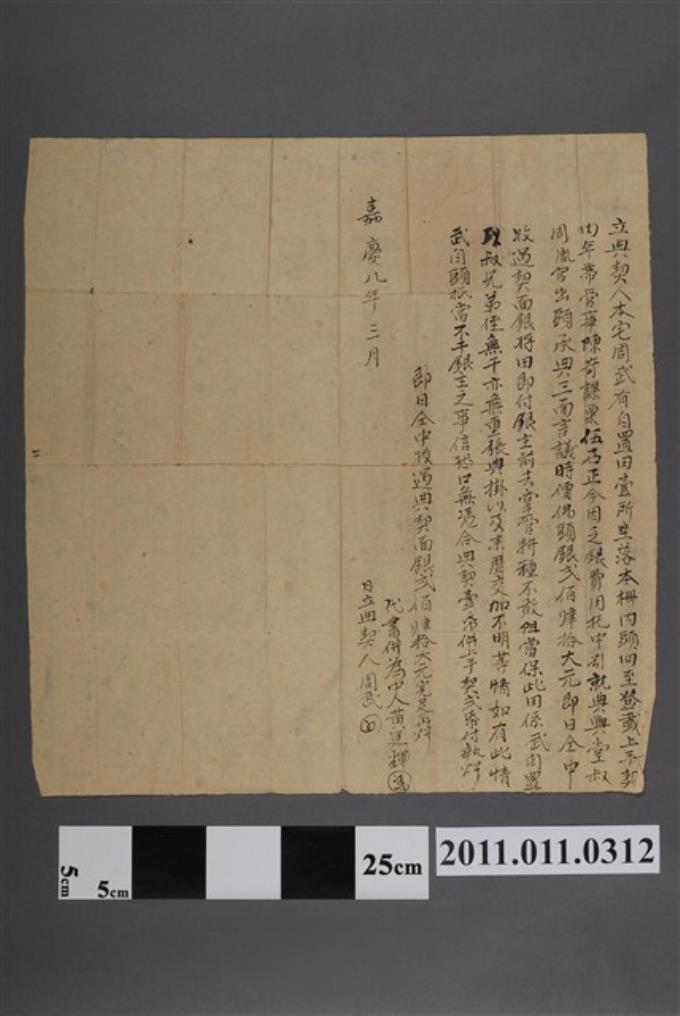 立典契人本宅周武有自置田壹所坐落本柵內頭四至登載上手契
內年帶管事陳奇課粟伍石正今因乏銀費用托中引就典與堂叔
周胤官出頭承典三面言議時價佛頭銀弍佰肆拾大元即日仝中
收過契面銀將田即付銀主前去掌管耕種不敢阻當保此田係武自置
與叔兄弟侄無干亦無重張典掛以及來歷交加不明等情如有此情
武自頭抵當不干銀主之事信恐口無憑合典契壹帋併上手契弍帋付執炤
即日仝中收過典契面銀弍佰肆拾大元完足再炤
代書併為中人黃
日立典契人周武
嘉慶八年三月
5cm
5cm
25cm
2011.011.0312